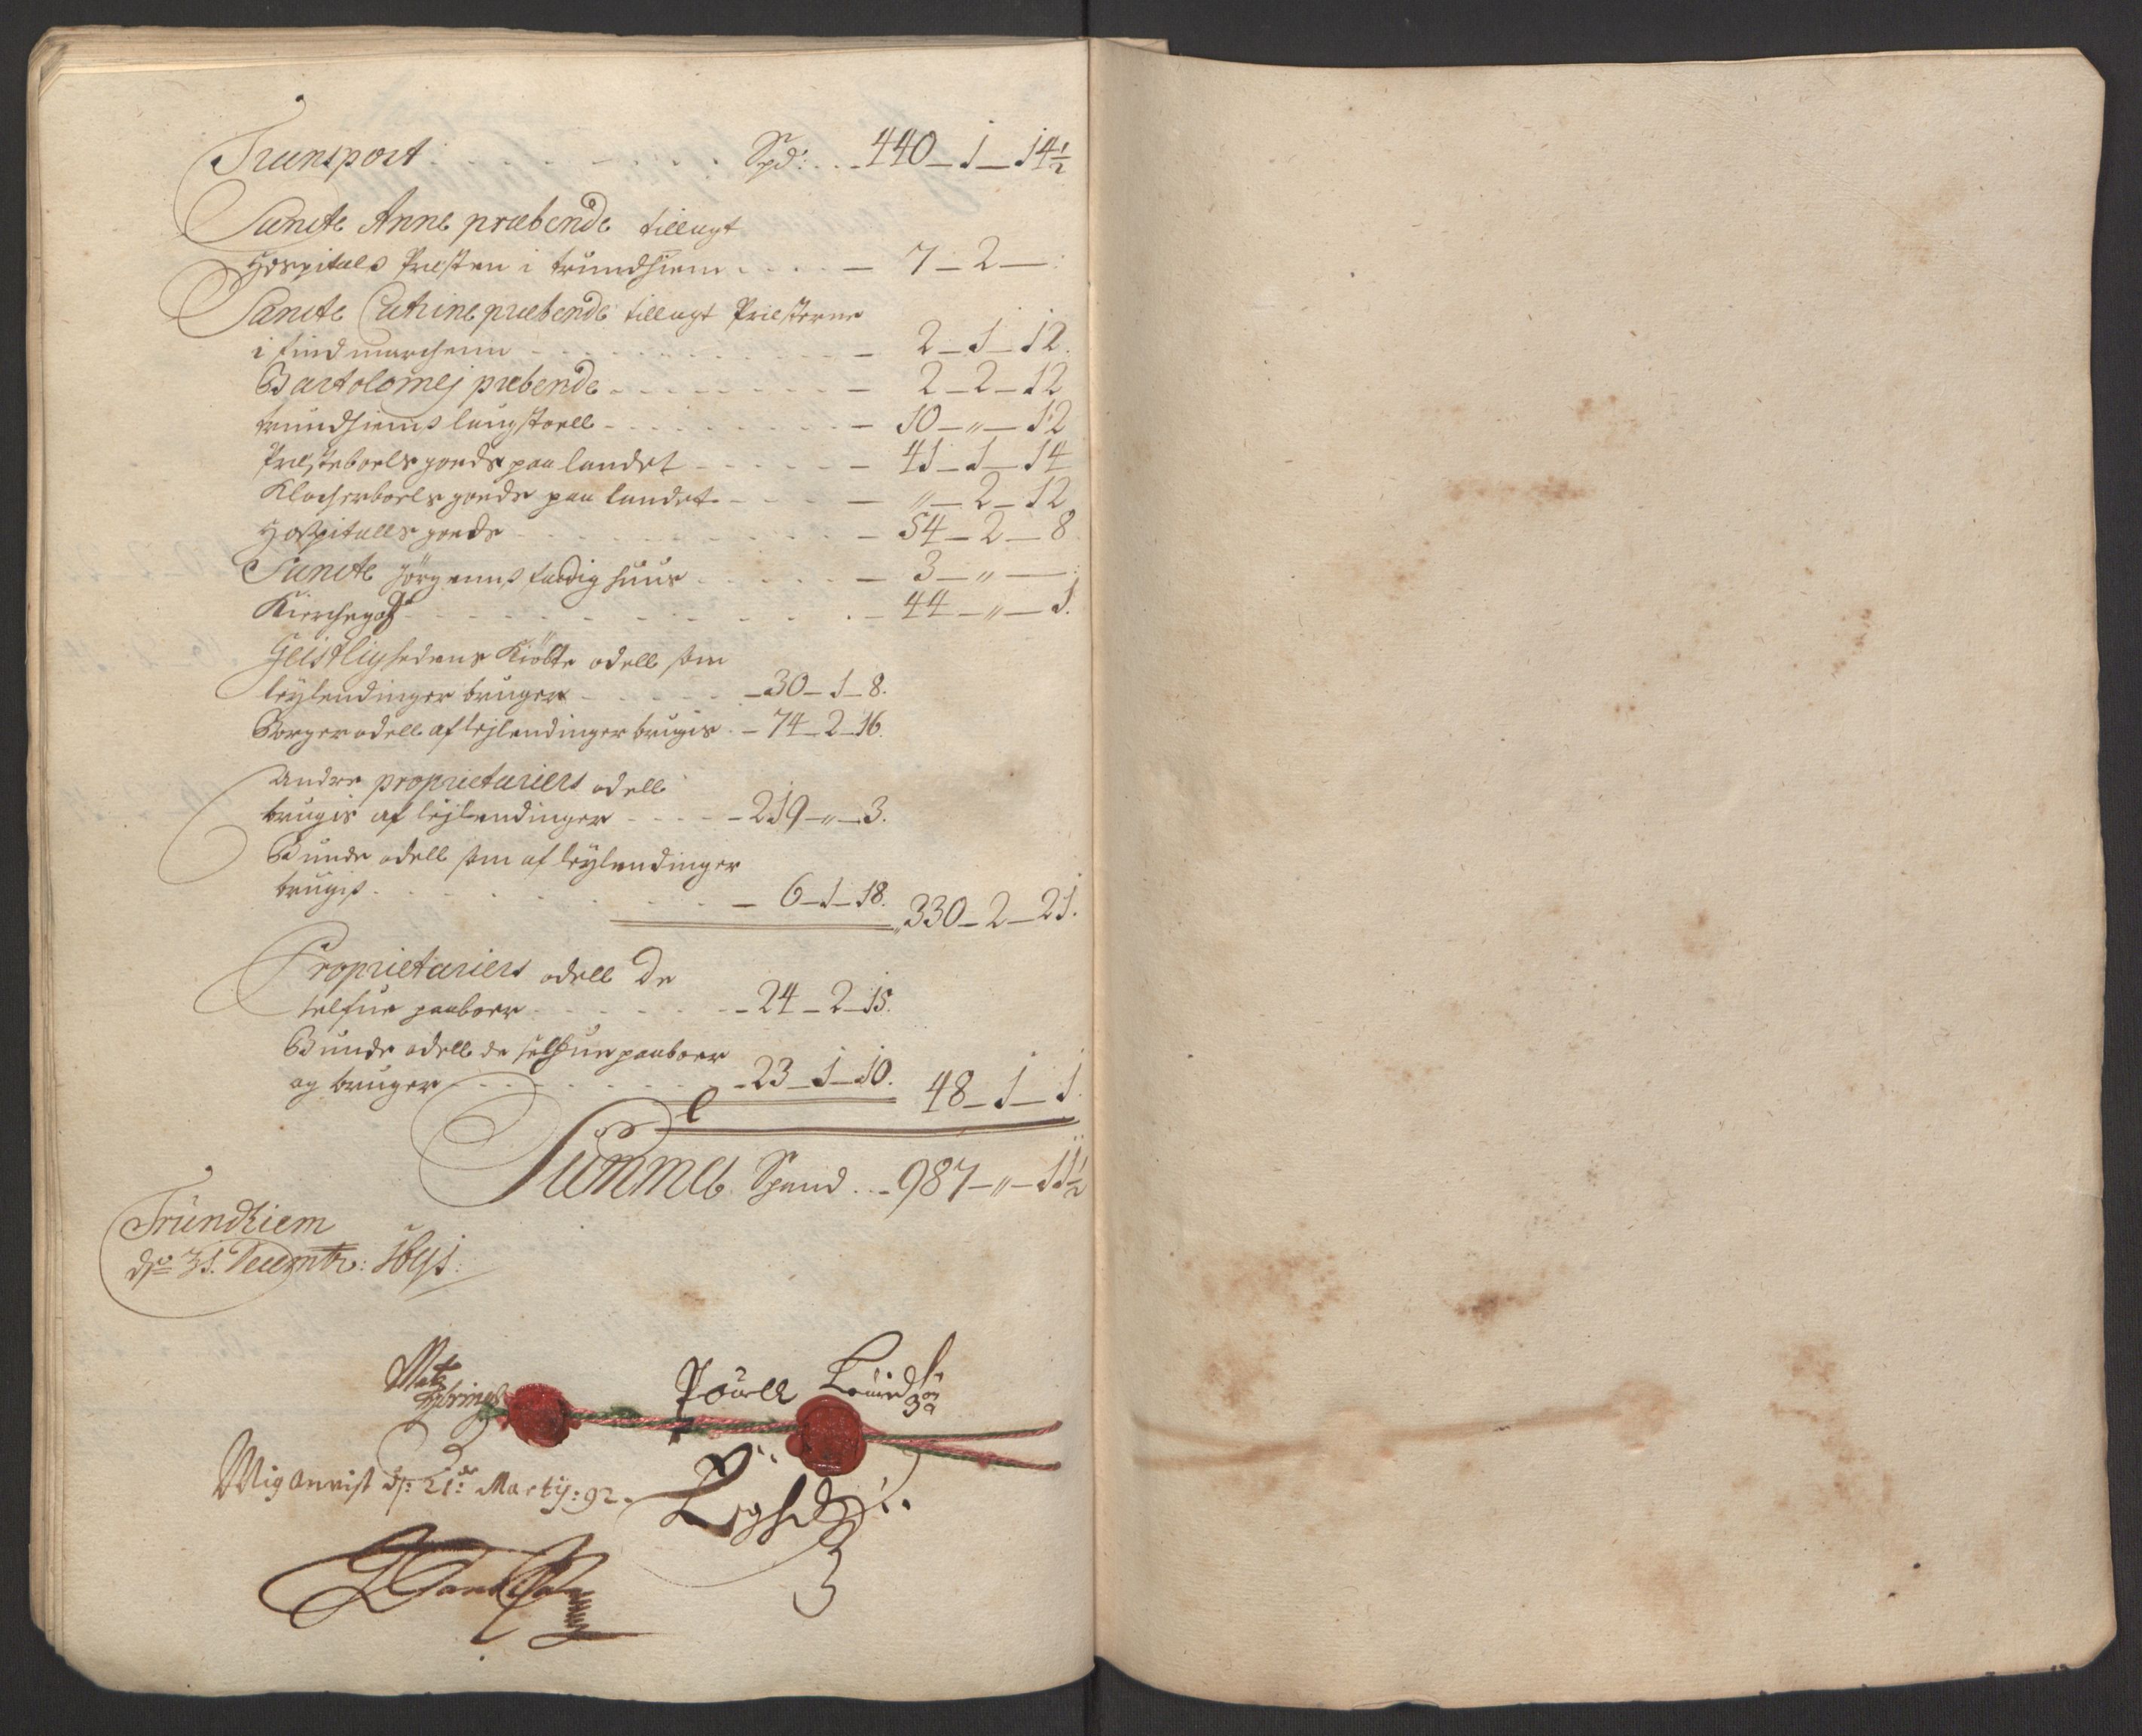 Transport Spd: 440 - 1 - 14½
Sancte Anne præbende tillagt
Hospitals Presten i trundhiem 7 - 2 -
Sancte Catrine præbende tillagt Presterne
i findmarchenn 2 - 1 - 12.
Bartolomej præbende 2 - 2 - 12
trundhiems laugstoell 10 - " - 12
Presteboels goeds paa landet 41 - 1 - 14
Klocherboels goeds paa landet " - 2 - 12
Hospitalls goeds 54 - 2 - 8
Sancte Jörgenns fattig huus 3 - " -
Kierchegods 44 - " - 1.
Geistlighedens Kiöbte odell som
leylendinger bruger 30 - 1 - 8.
Borger odell af lejlendinger brugis 74 - 2 - 16.
Andre proprietariers odell
brugis af lejlendinger 219 - " - 3.
Bunde odell som af leylendinger
brugis 6 - 1 - 18. 330 - 2 - 21.
Proprietariers odell De
selfue paaboer 24 - 2 - 15.
Bunde odell de selfue paaboer
og bruger 23 - 1 - 10. 48 - 1 - 1.
Summa Spand 987 - " - 11½
Trundhiem
dn 31. Decembr: 1691.
Matz
Pouell
Mig anvist dn: 21de Martij: 92.